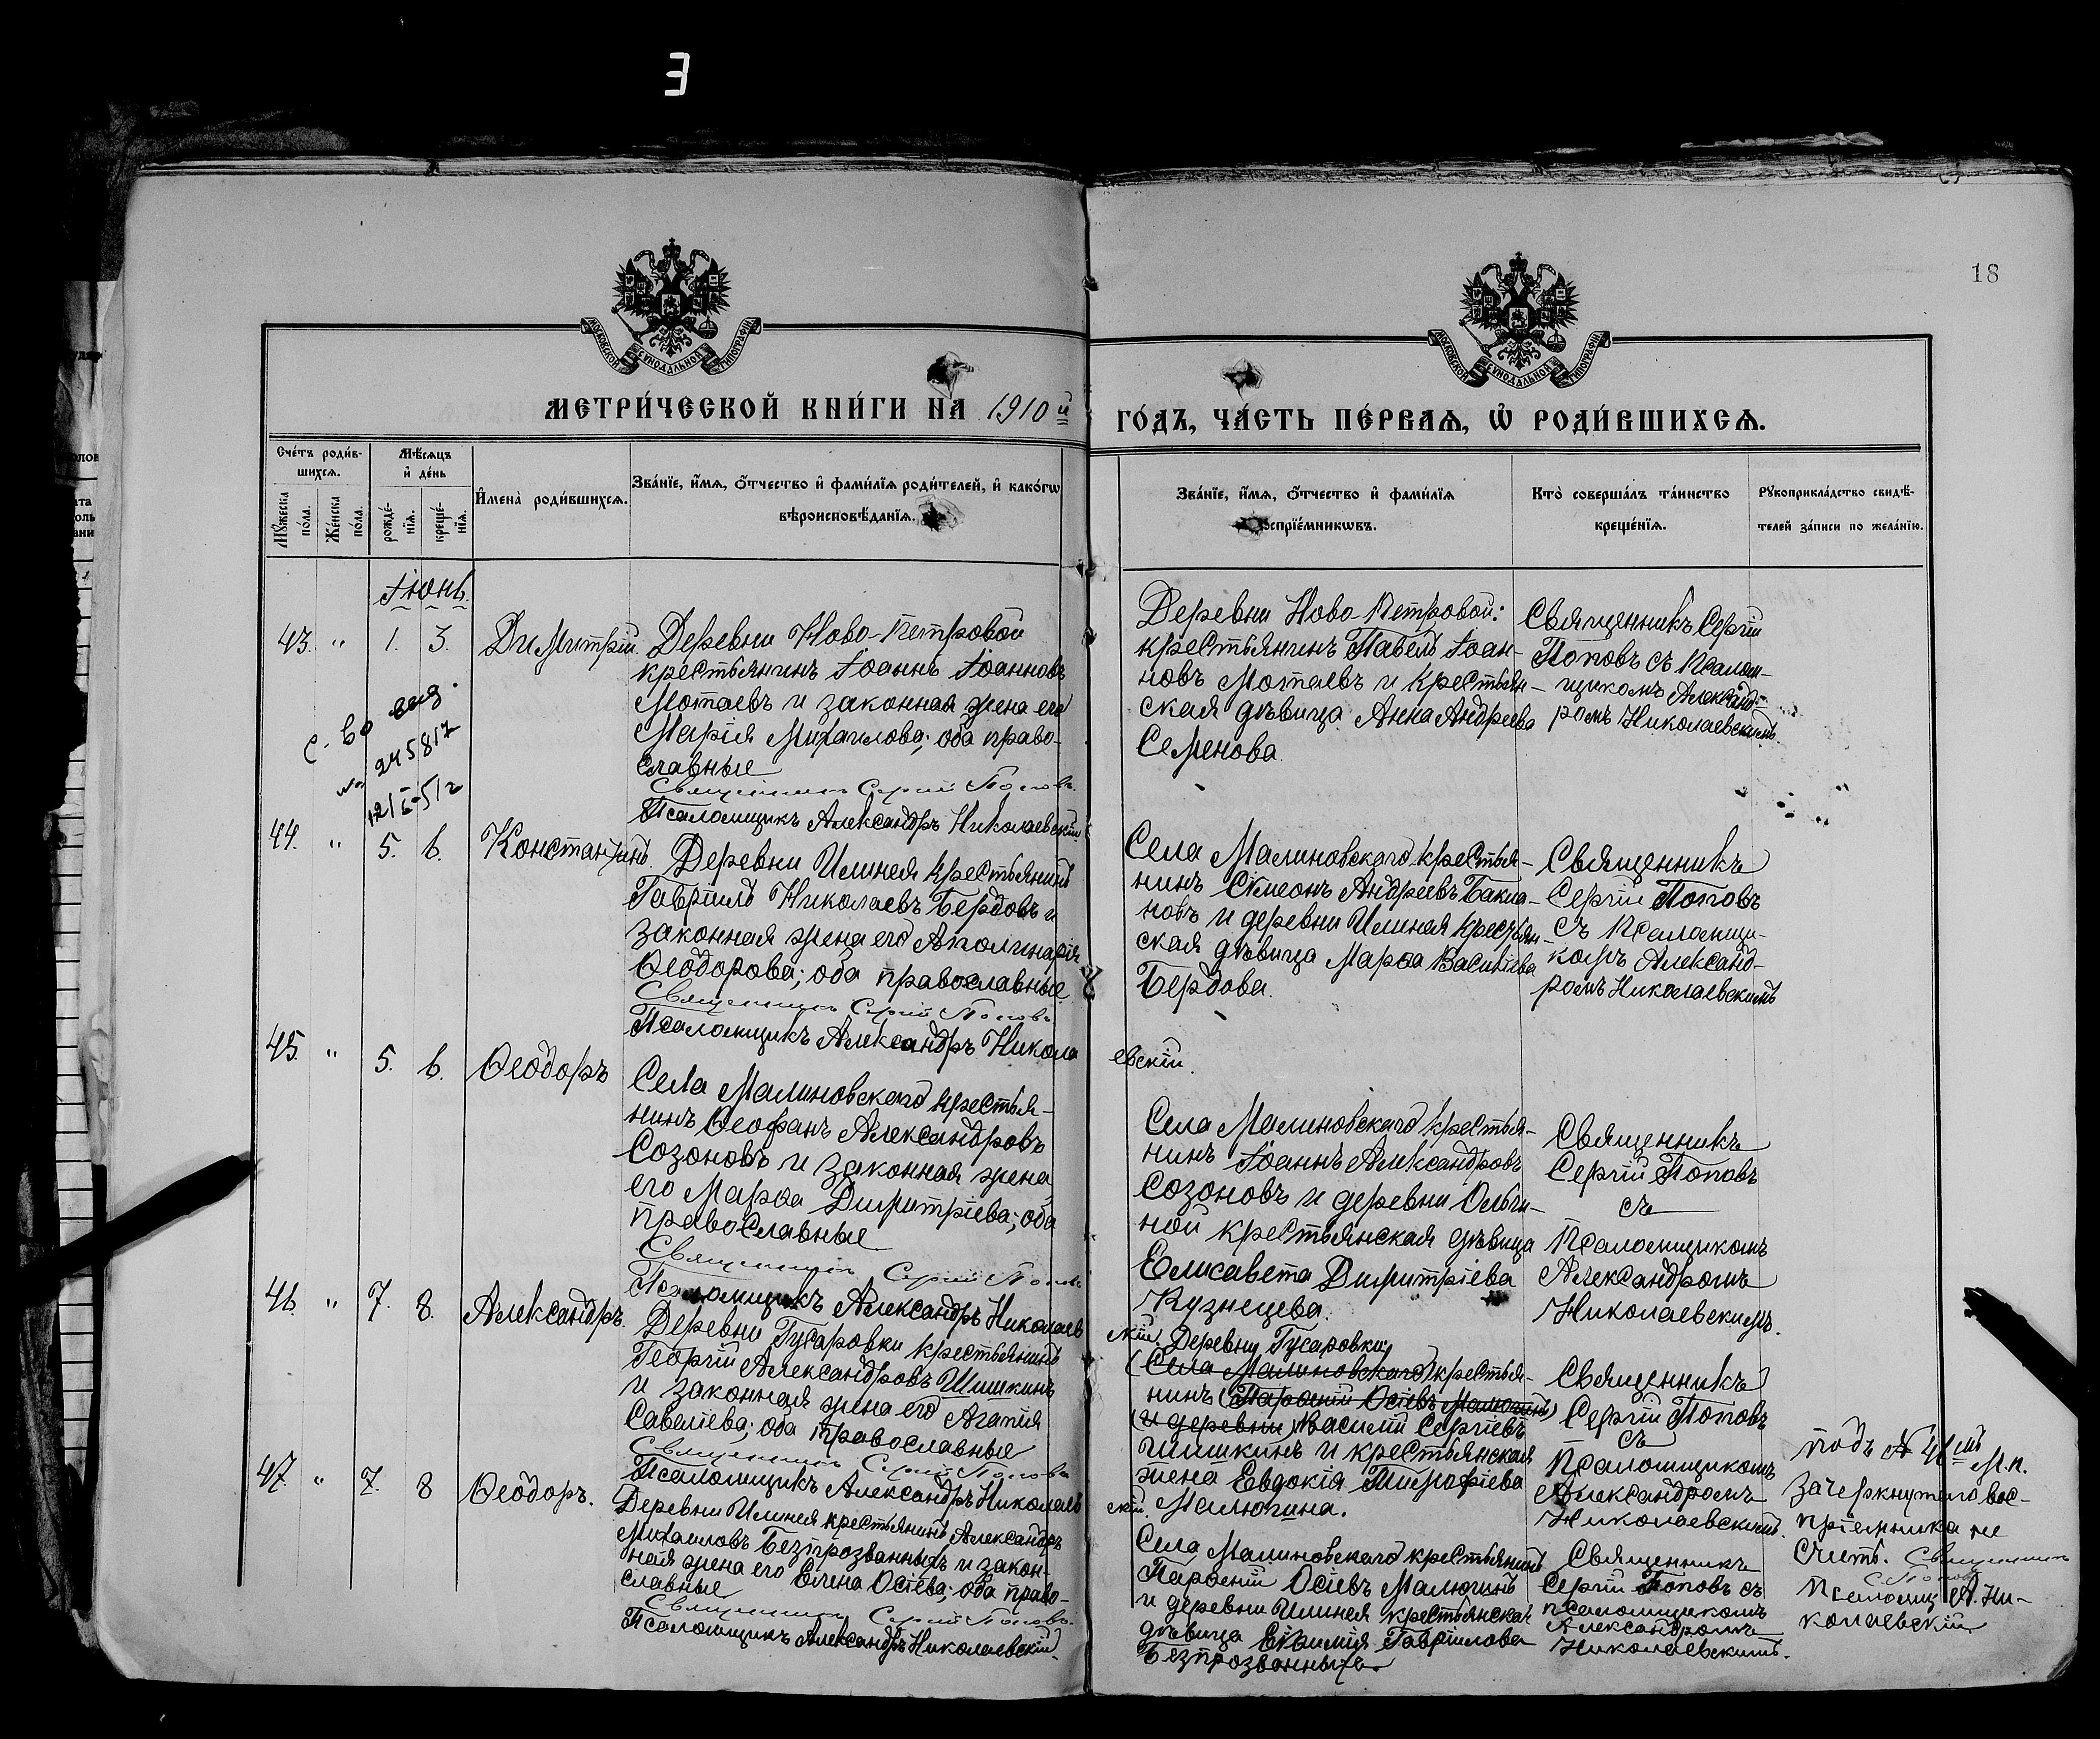 3
18
МОСКОВСКОЙ СѴНОДАЛЬНОЙ ТИПОГРАФІИ
МОСКОВСКОЙ СѴНОДАЛЬНОЙ ТИПОГРАФІИ
МЕТРИ́ЧЕСКОЙ КНИ́ГИ НА 1910й
ГО́ДЪ, ЧА́СТЬ ПЕ́РВАѦ, Ѡ҆ РОДИ́ВШИХСѦ.
Сче́тъ роди́в-
шихсѧ.
Мꙋжеска по́ла.
Же́нска по́ла.
Мѣ́сѧцъ и҆ де́нь
рожде́-
нїѧ.
креще́-
нїѧ.
И҆мена̀ роди́вшихсѧ.
Зва́нїе, и҆́мѧ, о҆́тчество и҆ фами́лїѧ роди́телей, и҆ како́гѡ
вѣроисповѣ́данїѧ.
Зва́нїе, и҆́мѧ, о҆́тчество и҆ фами́лїѧ
воспрїе́мникѡвъ.
Кто̀ соверша́лъ та́инство
креще́нїѧ.
Рꙋкоприкла́дство свидѣ́-
телей за́писи по жела́нїю.
Іюнь.
43. " 1. 3. Димитрій.
Деревни Ново-Петровой
крестьянинъ Іоаннъ Іоанновъ
Мотаевъ и законная жена его
Марія Михаилова; оба право-
славные
Священникъ Сергій Поповъ.
Псаломщикъ Александръ Николаевскій
Деревни Ново-Петровой:
крестьянинъ Павелъ Іоан-
новъ Мотаевъ и крестьян-
ская дѣвица Анна Андреева
Семенова.
Священникъ Сергій
Поповъ съ псалом-
щикомъ Александ-
ромъ Николаевскимъ.
с-во выд.
№ 245817
12/I-51г
44. " 5. 6. Константинъ.
Деревни Илинея крестьянинъ
Гавріилъ Николаевъ Бердовъ и
законная жена его Аполинарія
Ѳеодорова; оба православные
Священникъ Сергій Поповъ
Псаломщикъ Александръ Никола
евскій.
Села Малиновскаго крестья-
нинъ Сѵмеонъ Андреевъ Бакла-
новъ и деревни Илиная крестьян-
ская дѣвица Марѳа Василіева
Бердова.
Священникъ
Сергій Поповъ
съ псаломщи-
комъ Александ-
ромъ Николаевскимъ
45. " 5. 6. Ѳеодоръ
Села Малиновскаго крестья-
нинъ Ѳеофанъ Александровъ
Созоновъ и законная жена
его Марѳа Димитріева; оба
православные
Священникъ Сергій Поповъ
Псаломщикъ Александръ Николаев
скій.
Села Малиновскаго крестья-
нинъ Іоаннъ Александровъ
Созоновъ и деревни Ольги-
ной крестьянская дѣвица
Елисавета Димитріева
Кузнецева.
Священникъ
Сергій Поповъ
съ
Псаломщикомъ
Александромъ
Николаевскимъ.
46 " 7. 8. Александръ.
Деревни Гусаровки крестьянинъ
Георгій Александровъ Шишкинъ
и законная жена его Агапія
Савеліева; оба православные
Священникъ Сергій Поповъ
Псаломщикъ Александръ Николаев
скій.
Деревни Гусаровки
(Села Малиновскаго) крестья-
нинъ (Парѳеній Осіевъ Малюгинъ)
(и деревни) Василій Сергіевъ
Шишкинъ и крестьянская
жена Евдокія Тимофіева
Малюгина.
Священникъ
Сергій Поповъ
съ
Псаломщикомъ
Александромъ
Николаевскимъ.
подъ № 46мъ м.п.
зачеркнутаго вос-
пріемника не
счит. Священникъ
С. Поповъ
Псаломщ. А. Ни-
колаевскій
47. " 7. 8 Ѳеодоръ.
Деревни Илинея крестьянинъ Александръ
Михаиловъ Безпрозванныхъ и закон-
ная жена его Елена Осіева; оба право-
славные
Священникъ Сергій Поповъ.
Псаломщикъ Александръ Николаевскій.
Села Малиновскаго крестьянинъ
Парѳеній Осіевъ Малюгинъ
и деревни Илинея крестьянская
дѣвица Евѳимія Гавріилова
Безпрозванныхъ.
Священникъ
Сергій Поповъ съ
псаломщикомъ
Александромъ
Николаевскимъ.